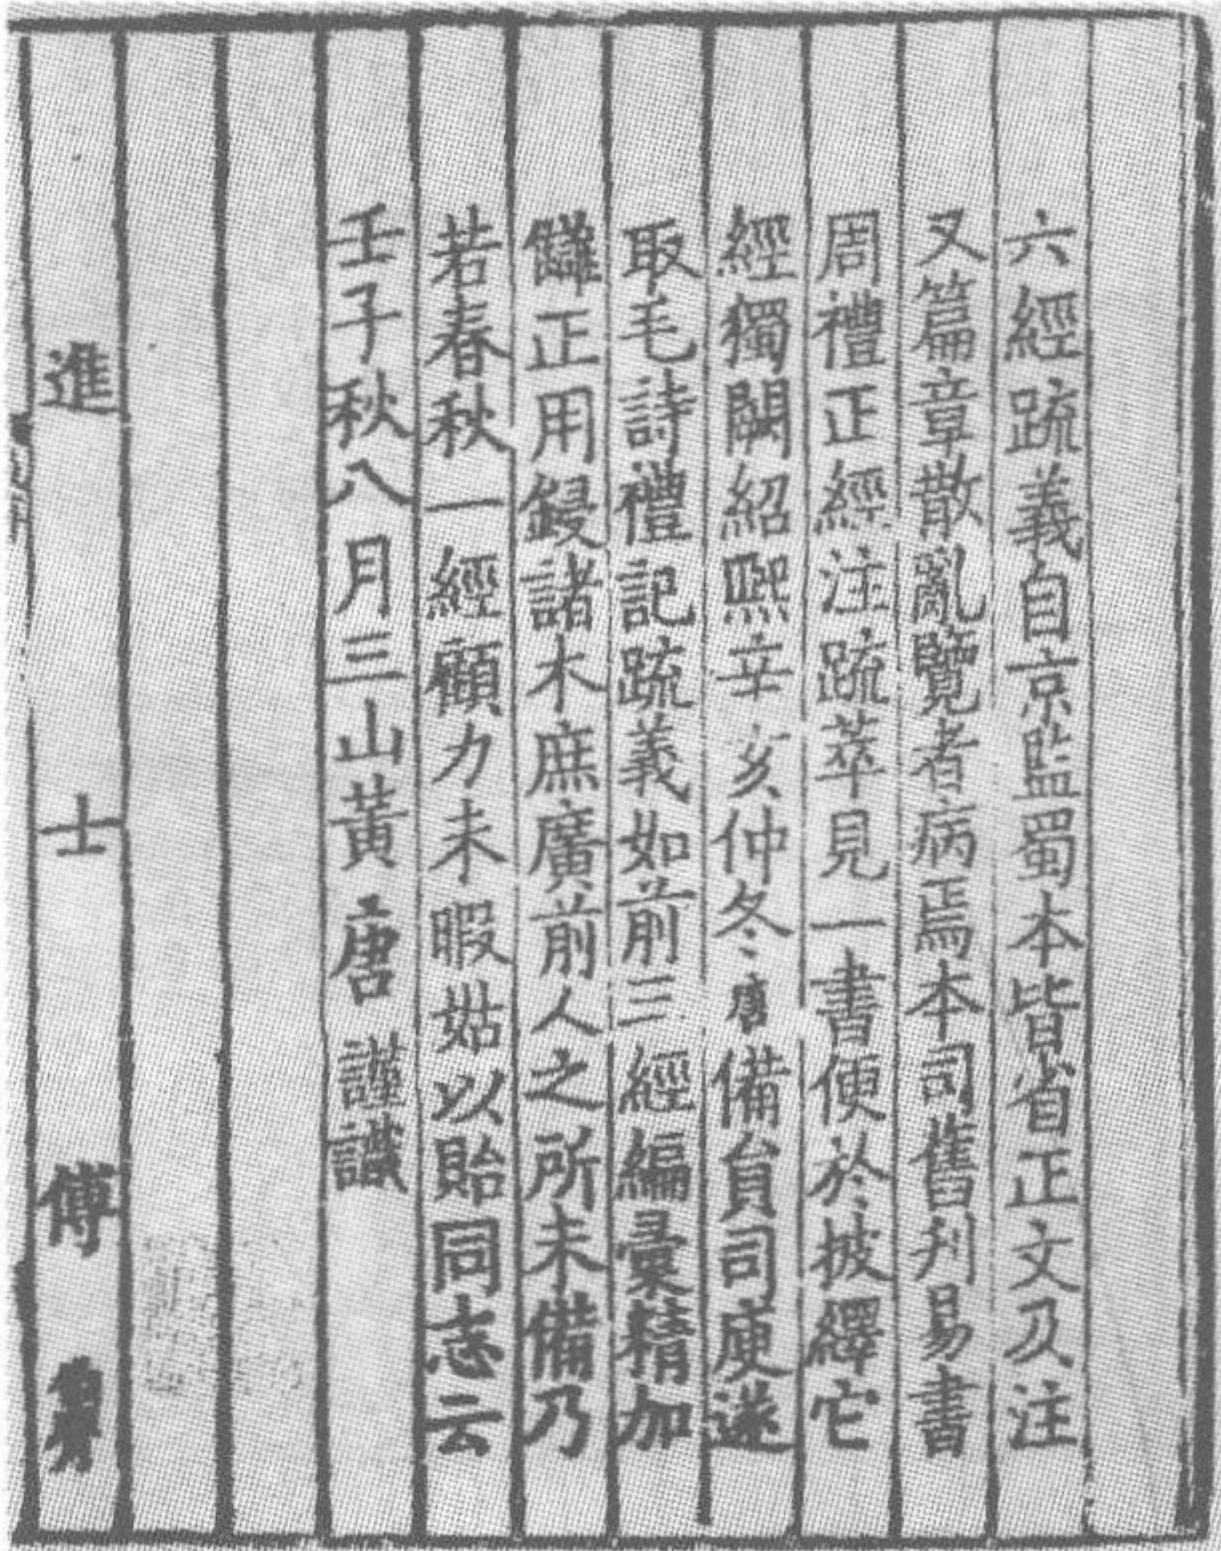 六經疏義自京監蜀本皆省正文及注
又篇章散亂覽者病焉本司舊刋易書
周禮正經注疏萃見一書便於披繹它
經獨闕紹熙辛亥仲冬唐備貟司庾遂
取毛詩禮記疏義如前三經編彚精加
讎正用鋟諸木庶廣前人之所未備乃
若春秋一經顧力未暇姑以貽同志云
壬子秋八月三山黃唐謹識
進士傅